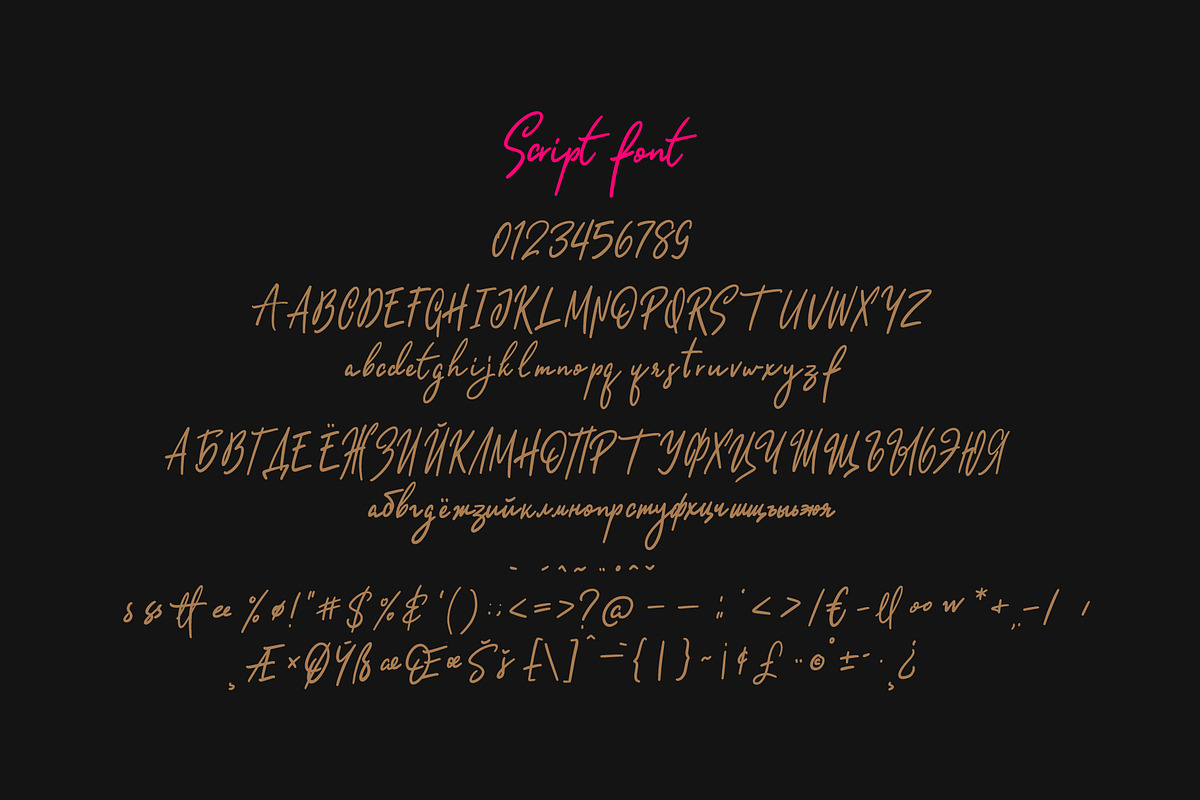 Script font
0123456789
AABCDEFGHIJKLMNOPQRSTUVWXYZ
abcdetghijklmnopq qrstruvwxyzf
АБВГДЕЁЖЗИЙКЛМНОПРТУФХЦЧШЩЪЫЬЭЮЯ
абвгдёжзийклмнопрстуфхцчшщъыьэюя
s ss tt ee % ø ! " # $ % & ' ( ) : ; < = > ? @ — — ¦ „ ˙ < > / € – ll oo w * + ¸„ – / ,
¸ Æ × Ø Ÿ ß æ Œ œ Š š [ \ ] ^ ¯ — { | } ~ ¡ ¢ £ ¨ © ° ± - · ¸ ¿